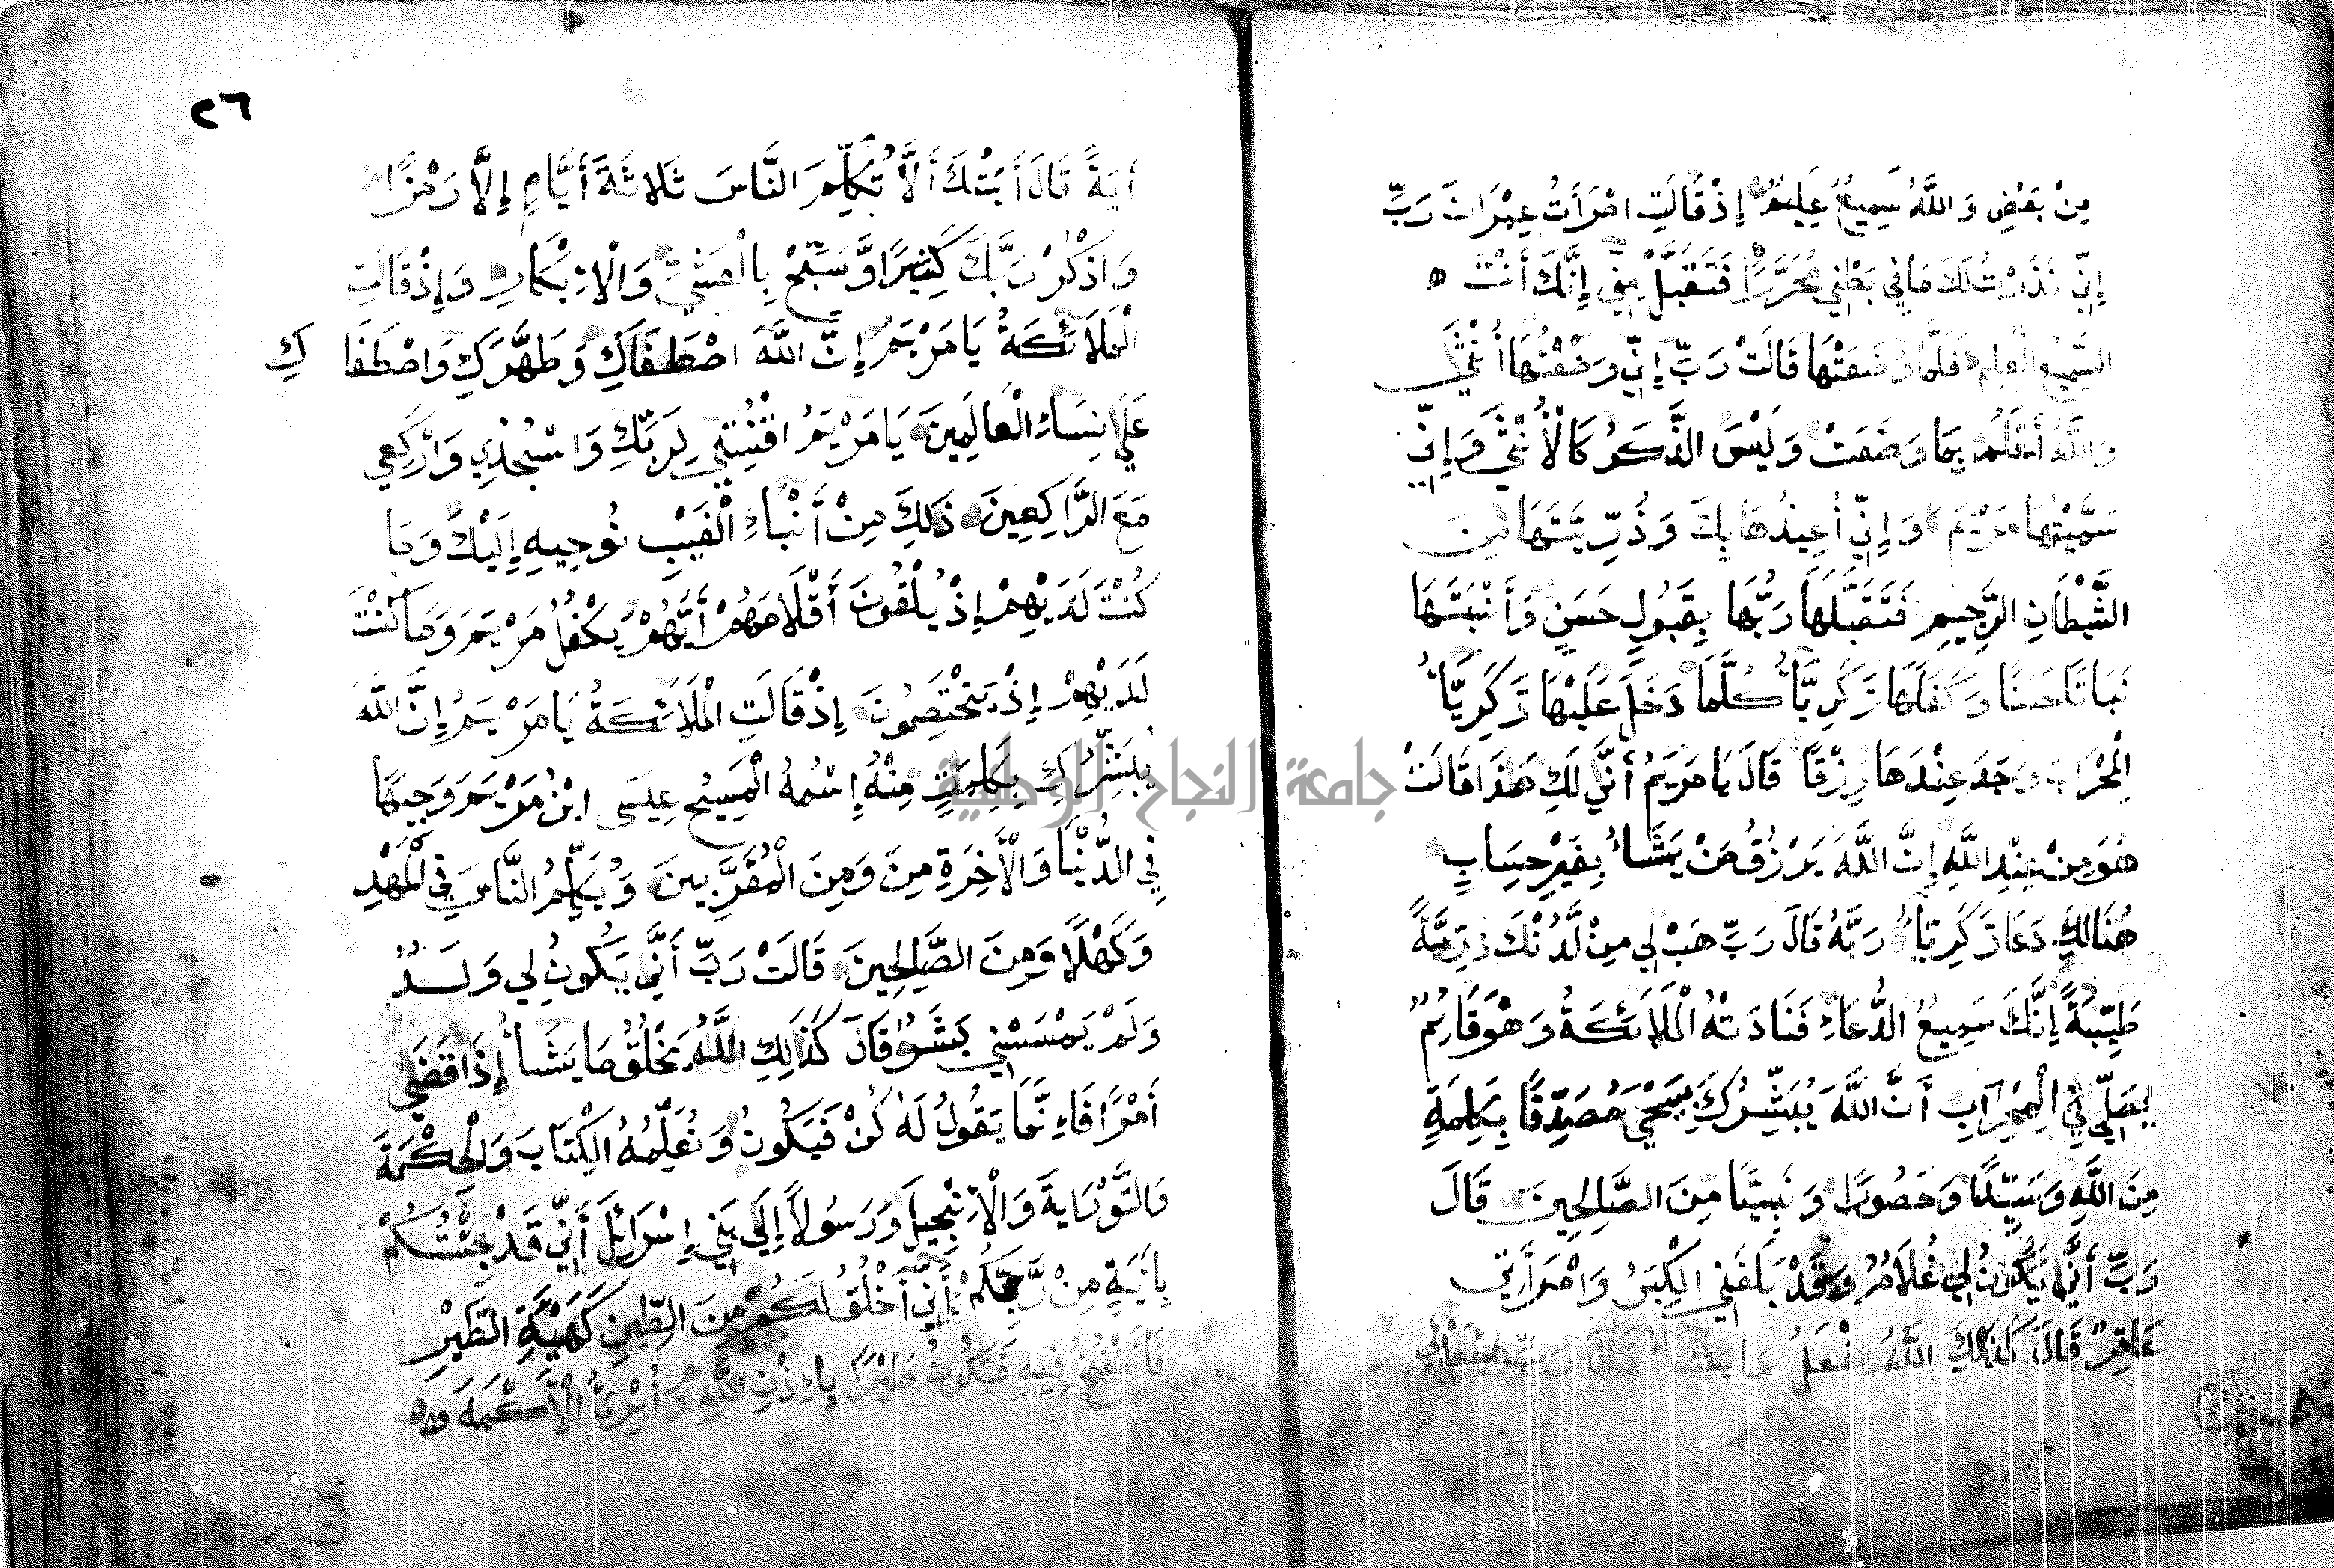 مِنْ بَعْضٍ وَاللَّهُ سَمِيعٌ عَلِيمٌ إِذْ قَالَتِ امْرَأَتُ عِمْرَانَ رَبِّ
إِنِّي نَذَرْتُ لَكَ مَا فِي بَطْنِي مُحَرَّرًا فَتَقَبَّلْ مِنِّي إِنَّكَ أَنْتَ
السَّمِيعُ الْعَلِيمُ فَلَمَّا وَضَعَتْهَا قَالَتْ رَبِّ إِنِّي وَضَعْتُهَا أُنْثَى
وَاللَّهُ أَعْلَمُ بِمَا وَضَعَتْ وَلَيْسَ الذَّكَرُ كَالْأُنْثَى وَإِنِّي
سَمَّيْتُهَا مَرْيَمَ وَإِنِّي أُعِيذُهَا بِكَ وَذُرِّيَّتَهَا مِنَ
الشَّيْطَانِ الرَّجِيمِ فَتَقَبَّلَهَا رَبُّهَا بِقَبُولٍ حَسَنٍ وَأَنْبَتَهَا
نَبَاتًا حَسَنًا وَكَفَلَهَا زَكَرِيَّاءُ كُلَّمَا دَخَلَ عَلَيْهَا زَكَرِيَّاءُ
الْمِحْرَابَ وَجَدَ عِنْدَهَا رِزْقًا قَالَ يَا مَرْيَمُ أَنَّى لَكِ هَذَا قَالَتْ
هُوَ مِنْ عِنْدِ اللَّهِ إِنَّ اللَّهَ يَرْزُقُ مَنْ يَشَاءُ بِغَيْرِ حِسَابٍ
هُنَالِكَ دَعَا زَكَرِيَّاءُ رَبَّهُ قَالَ رَبِّ هَبْ لِي مِنْ لَّدُنْكَ ذُرِّيَّةً
طَيِّبَةً إِنَّكَ سَمِيعُ الدُّعَاءِ فَنَادَتْهُ الْمَلَائِكَةُ وَهْوَ قَائِمٌ
يُصَلِّي فِي الْمِحْرَابِ أَنَّ اللَّهَ يُبَشِّرُكَ بِيَحْيَى مُصَدِّقًا بِكَلِمَةٍ
مِنَ اللَّهِ وَسَيِّدًا وَحَصُورًا وَنَبِيئًا مِنَ الصَّالِحِينَ قَالَ
رَبِّ أَنَّى يَكُونُ لِي غُلَامٌ وَقَدْ بَلَغَنِيَ الْكِبَرُ وَامْرَأَتِي
عَاقِرٌ قَالَ كَذَلِكَ اللَّهُ يَفْعَلُ مَا يَشَاءُ قَالَ رَبِّ اجْعَل لِّي
٢٦
أيَةً قَالَ أيَتُكَ أَلَّا تُكَلِّمَ النَّاسَ ثَلَاثَةَ أَيَّامٍ إِلَّا رَمْزًا
وَاذْكُرْ رَبَّكَ كَثِيرًا وَّسَبِّحْ بِالْعَشِيِّ وَالْإِبْكَارِ وَإِذْ قَالَتِ
الْمَلَائِكَةُ يَا مَرْيَمُ إِنَّ اللَّهَ اصْطَفَاكِ وَطَهَّرَكِ وَاصْطَفَاكِ
عَلَى نِسَاءِ الْعَالَمِينَ يَا مَرْيَمُ اقْنُتِي لِرَبِّكِ وَاسْجُدِي وَارْكَعِي
مَعَ الرَّاكِعِينَ ذَلِكَ مِنْ أَنْبَاءِ الْغَيْبِ نُوحِيهِ إِلَيْكَ وَمَا
كُنْتَ لَدَيْهِمْ إِذْ يُلْقُونَ أَقْلَامَهُمْ أَيُّهُمْ يَكْفُلُ مَرْيَمَ وَمَا كُنْتَ
لَدَيْهِمْ إِذْ يَخْتَصِمُونَ إِذْ قَالَتِ الْمَلَائِكَةُ يَا مَرْيَمُ إِنَّ اللَّهَ
يُبَشِّرُكِ بِكَلِمَةٍ مِنْهُ إِسْمُهُ الْمَسِيحُ عِيسَى ابْنُ مَرْيَمَ وَجِيهًا
فِي الدُّنْيَا وَالْأَخِرَةِ مِنَ وَمِنَ الْمُقَرَّبِينَ وَيُكَلِّمُ النَّاسَ فِي الْمَهْدِ
وَكَهْلًا وَمِنَ الصَّالِحِينَ قَالَتْ رَبِّ أَنَّى يَكُونُ لِي وَلَدٌ
وَلَمْ يَمْسَسْنِي بَشَرٌ قَالَ كَذَلِكِ اللَّهُ يَخْلُقُ مَا يَشَاءُ إِذَا قَضَى
أَمْرًا فَإِنَّمَا يَقُولُ لَهُ كُنْ فَيَكُونُ وَنُعَلِّمُهُ الْكِتَابَ وَالْحِكْمَةَ
وَالتَّوْرَايةَ وَالْإِنْجِيلَ وَرَسُولًا إِلَى بَنِي إِسْرَائِلَ أَنِّي قَدْ جِئْتُكُمْ
بِأيَةٍ مِنْ رَّبِّكُمْ أَنِّي أَخْلُقُ لَكُمْ مِنَ الطِّينِ كَهَيْئَةِ الطَّيْرِ
فَأَنْفُخُ فِيهِ فَيَكُونُ طَيْرًا بِإِذْنِ اللَّهِ وَأُبْرِئُ الْأَكْمَهَ
جامعة النجاح الوطنية